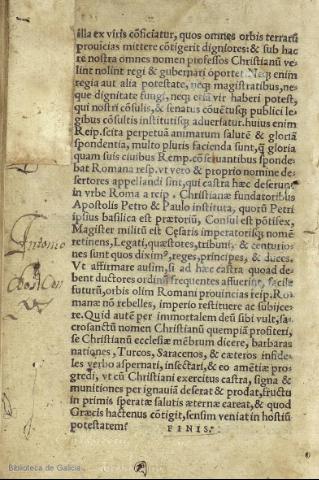 illa ex viris cōficiatur, quos omnes orbis terrarū
prouicias mittere cōtigerit digniores: & sub hac
re nostra omnes nomen professos Christianū ve
lint nolint regi & gubernari oportet. Neq; enim
regia aut alia potestate, neq; magistratibus, ne
que dignitate fungi, neq; etiā vir haberi potest,
qui nostri cōsulis, & senatus cōuētusq; publici le
gibus cōsultis institutisq; aduersatur. huius enim
Reip. scita perpetuā animarum salutē & gloriā
spondentia, multo pluris facienda sunt, q̄ gloria
quam suis ciuibus Remp. cōseruantibus sponde-
bat Romana resp. vt vero & proprio nomine de
sertores appellandi sint, qui castra hæc deserunt
in vrbe Roma a resp. Christianæ fundatoribus
Apostolis Petro & Paulo instituta, quorū Petri
ipsius basilica est prætoriū, Consul est pōtifex,
Magister militū est Cesaris imperatorisq; nomē
retinens, Legati, quæstores, tribuni, & centurio-
nes sunt quos dixim⁹, reges, principes, & duces.
Vt affirmare ausim, si ad hæc castra quoad de-
bent ductores ordinū frequentes affuerint, facile
futurū, orbis olim Romani prouincias resp. Ro-
manæ nō rebelles, imperio restituere ac subijce-
re. Quid autē per immortalem deū sibi vult, sa-
crosanctū nomen Christianū quempiā profiteri,
se Christianū ecclesiæ mēbrum dicere, barbaras
nationes, Turcos, Saracenos, & cæteros infide-
les verbo aspernari, insectari, & eo amētiæ pro-
gredi, vt cū Christiani exercitus castra, signa &
munitiones per ignauiā deserat & prodat, fructu
in primis speratæ salutis æternæ careat, & quod
Græcis hactenus cōtigit, sensim veniat in hostiū
potestatem?
FINIS.
Antonio
Biblioteca de Galicia